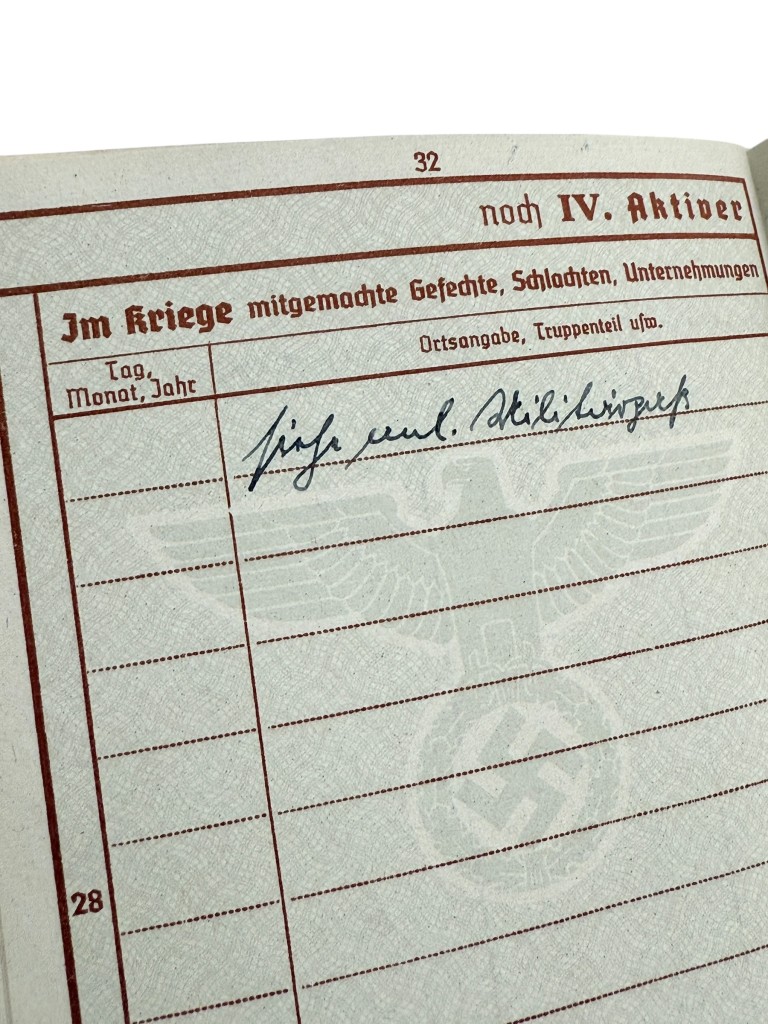 32
noch IV. Aktiver
Im Kriege mitgemachte Gefechte, Schlachten, Unternehmungen
Tag,
Monat, Jahr
Ortsangabe, Truppenteil usw.
siehe Militärpaß
28